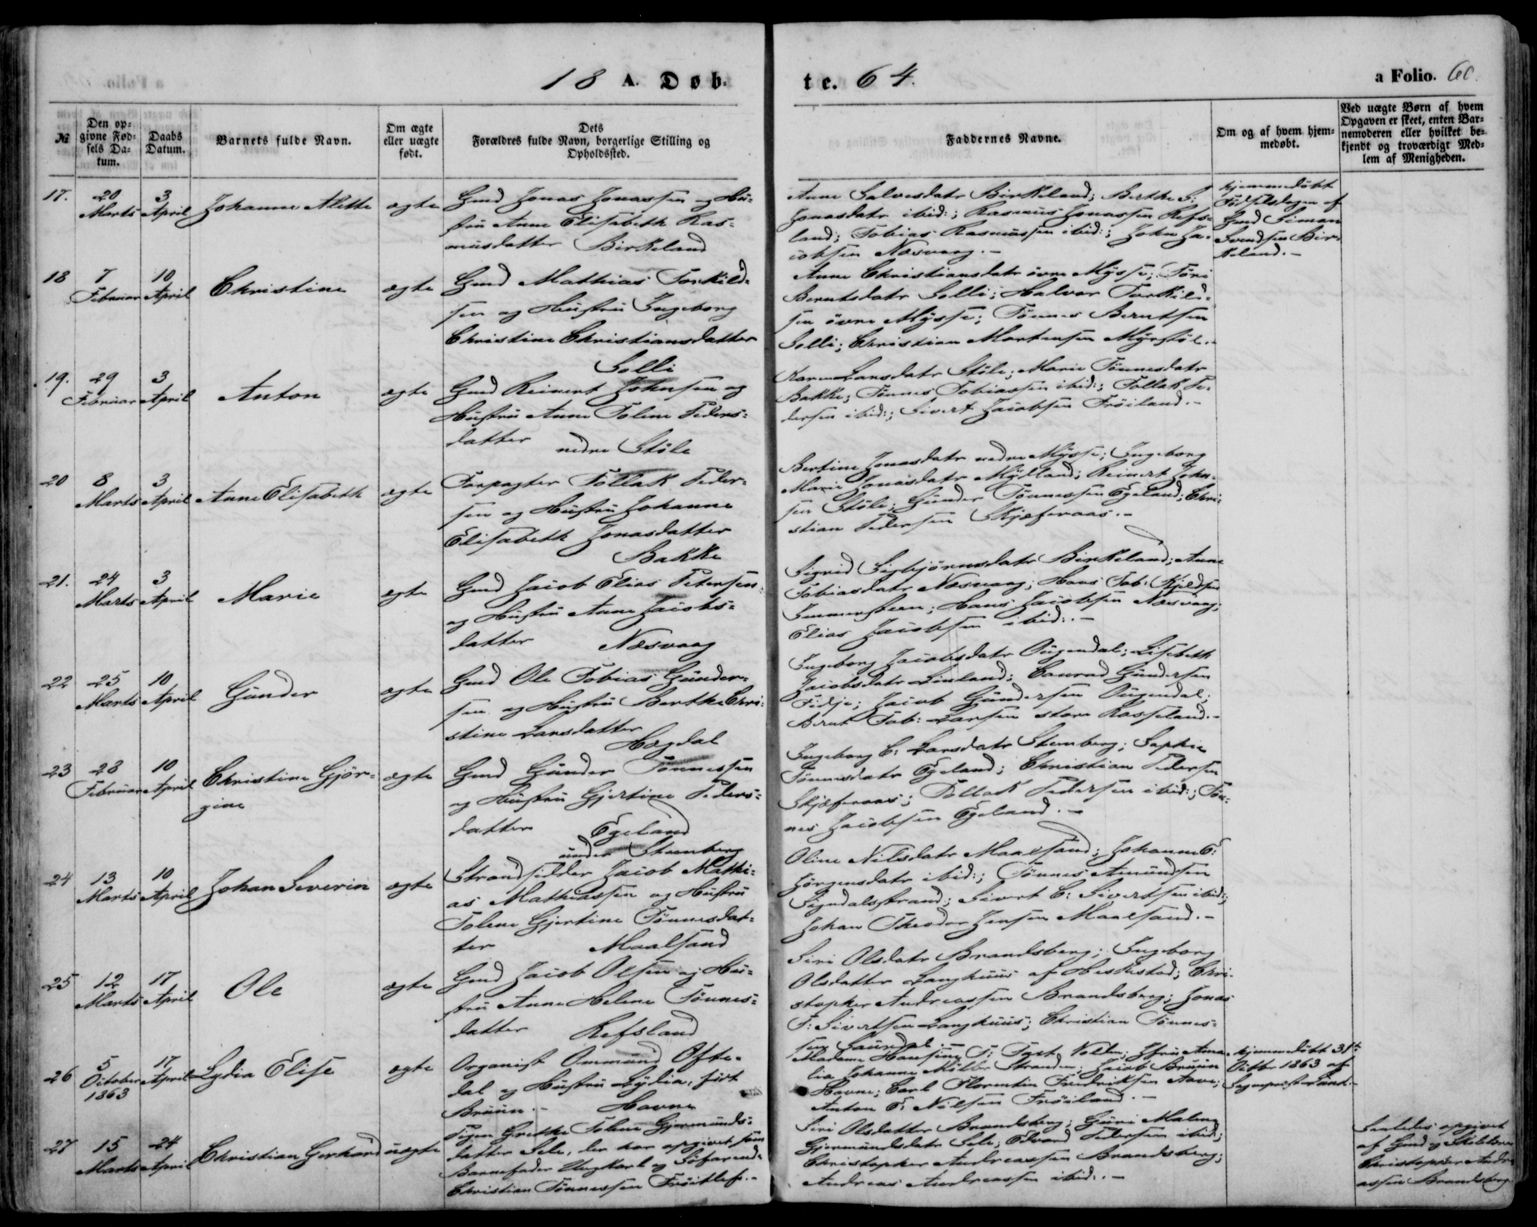 18 A. Døb- te. 64.
a Folio. 60.
№
Den op-
givne Fød-
sels Da-
tum.
Daabs
Datum.
Barnets fulde Navn.
Om ægte
eller uægte
født.
Dets
Forældres fulde Navn, borgerlige Stilling og
Opholdssted.
Faddernes Navne.
Om og af hvem hjem-
medøbt.
Ved uægte Børn af hvem
Opgaven er skeet, enten Bar-
nemoderen eller hvilket be-
kjendt og troværdigt Med-
lem af Menigheden.
17.
20
Marts
3
April
Johanne Alette
ægte
Gmd Jonas Jonassen og Hu-
stru Anne Elisabeth Ras-
musdatter Birkeland
Anne Salvesdatr Birkeland; Berthe S.
Jonasdatr ibid:; Rasmus Jonassen Refs-
land; Tobias Rasmussen ibid:; John Ja-
cobsen Næsvaag.-
Hjemmedøbt
Fødselsdagen af
Gmd Simon
Svendsen Bir-
keland.-
18
7
Februar
10
April
Christine
ægte
Gmd Mathias Torkild-
sen og Hustru Ingeborg
Christine Christiansdatter
Solli
Anne Christiansdatr øvre Mysse; Tøri
Berntsdatr Solli; Halvor Torkild-
sen øvre Mysse; Tønnes Berntsen
Solli; Christian Mortensen Myrstøl.-
19.
29
Februar
3
April
Anton
ægte
Gmd Reinert Johnsen og
Hustru Anne Tolene Peders-
datter nedre Støle
Karen Larsdatr Støle; Marie Tønnesdatr
Bakke; Tønnes Tobiassen ibid:; Tollak Pe-
dersen ibid:; Sivert Jacobsen Frøiland.-
20
8
Marts
3
April
Anne Elisabeth
ægte
Forpagter Tollak Peder-
sen og Hustru Johanne
Elisabeth Jonasdatter
Bakke
Bertine Jonasdatr nedre Mysse; Ingeborg
Marie Jonasdatr Mylland; Reinert John-
sen Støle; Gunder Tønnessen Egeland; Chri-
stian Pedersen Skjæveraas.-
21.
24
Marts
3
April
Marie
ægte
Gmd Jacob Elias Petersen
og Hustru Anne Jacobs-
datter Næsvaag
Sigrid Sigbjørnsdatr Birkeland; Anne
Tobiasdatr Næsvaag; Hans Tob:
Hans Jacobsen Næsvaag;
Elias Jacobsen ibid:.-
22
25
Marts
10
April
Gunder
ægte
Gmd Ole Tobias Gunder-
sen og Hustru Berthe Chri-
stine Larsdatter
Hogdal
Ingeborg Jacobsdatr Lisebeth
Jacobsdatr Conrad Gundersen
Fidje; Jacob Gundersen
Bernt Tob: Larsen store Rosseland.-
23
28
Februar
10
April
Christine Gjør-
gine
ægte
Gmd Gunder Tønnessen
og Hustru Gjertine Peders-
datter Egeland
under Steenberg
Ingeborg C: Larsdatr Stenberg; Sophie
Tønnesdatr Egeland; Christian Pedersen
Skjæveraas; Tollak Pedersen ibid:; Tøn-
nes Jacobsen Egeland.-
24
13
Marts
10
April
Johan Severin
ægte
Strandsidder Jacob Mathi-
as Mathiassen og Hustru
Tolene Gjertine Tønnesdat-
ter Maalsand
Oline Nilsdatr Maalsand; Johanne E:
Jørgensdatr ibid:; Tønnes Amundsen
Sogndalsstrand; Sivert C: Sivertsen ibid;
Johan Theodor Jensen Maalsand.-
25
12
Marts
17
April
Ole
ægte
Gmd Jacob Olsen og Hus-
tru Anne Helene Tønnes-
datter Refsland
Siri Olsdatr Brandsberg; Ingeborg
Olsdatter Langhuus af Heskestad; Chri-
stopher Andreassen Brandsberg; Jonas
T: Sivertsen Langhuus; Christian Tønnes-
sen
26
5
October
1863
17
April
Lydia Elise
ægte
Organist Ommund Ofte-
dal og Hustru Lydia, født
Bruun.- Havne
Madame Hansine T: Jfru Ama-
lia Johanne Møller Stranden; Jacob Bruun
Havne; Carl Florentin Fredriksen Havne;
Anton T: Nilsen Frøiland.-
Hjemmedøbt 31te
Octbr 1863 af
Sogneprest
27
15
Marts
24
April
Christian Gerhard
uægte
Pigen Grethe Tolene Gjermunds-
datter Sele, der har opgivet som
Barnefader Ungkarl og Søfarende
Christian Tønnessen
Siri Olsdatter Brandsberg; Guro Malene
Gjermundsdatr Sele; Edvard Pedersen ibid;
Christopher Andreassen Brandsberg;
Andreas Andreassen ibid:.-
opgivet
af Gmd og
Christopher Andre-
assen Brandsberg